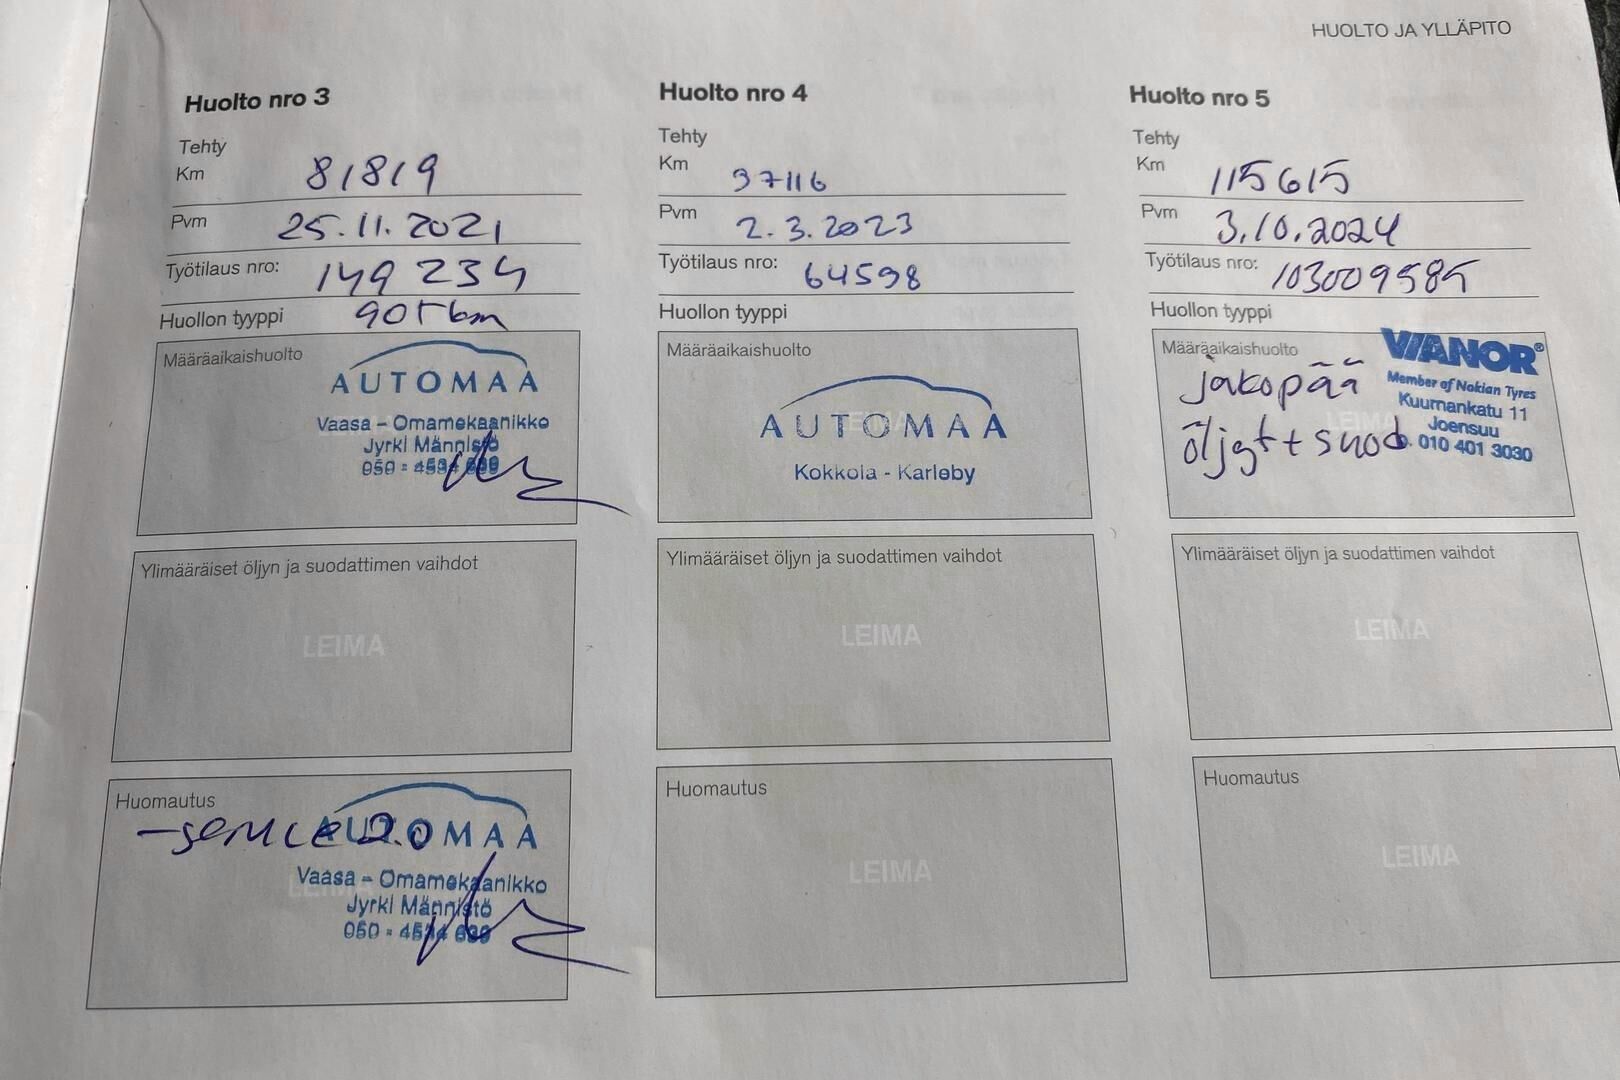 HUOLTO JA YLLÄPITO
Huolto nro 3
Tehty
Km 81819
Pvm 25.11.2021
Työtilaus nro: 149 234
Huollon tyyppi 90Tkm
Määräaikaishuolto
AUTOMAA
Vaasa – Omamekaanikko
Jyrki Männistö
050 - 4534
Ylimääräiset öljyn ja suodattimen vaihdot
LEIMA
Huomautus
-service 2.0
AUTOMAA
Vaasa – Omamekaanikko
Jyrki Männistö
050 - 4534
Huolto nro 4
Tehty
Km 97116
Pvm 2.3.2023
Työtilaus nro: 64598
Huollon tyyppi
Määräaikaishuolto
AUTOMAA
Kokkola - Karleby
Ylimääräiset öljyn ja suodattimen vaihdot
LEIMA
Huomautus
LEIMA
Huolto nro 5
Tehty
Km 115615
Pvm 3.10.2024
Työtilaus nro: 103009585
Huollon tyyppi
Määräaikaishuolto
jakopää
öljyt + suod.
VIANOR®
Member of Nokian Tyres
Kuurnankatu 11
Joensuu
p. 010 401 3030
Ylimääräiset öljyn ja suodattimen vaihdot
LEIMA
Huomautus
LEIMA